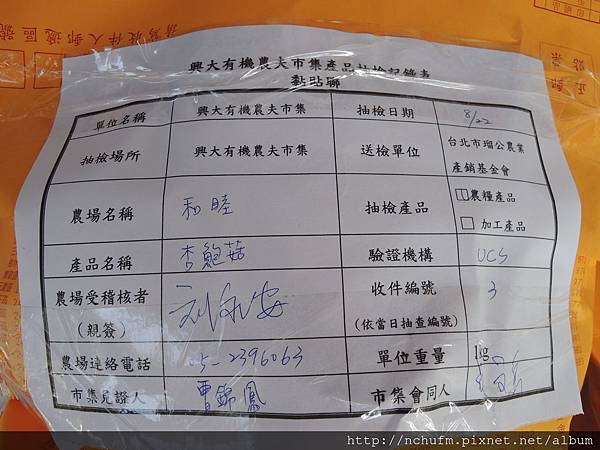 興大有機農夫市集產品抽檢記錄表
黏貼聯
單位名稱 興大有機農夫市集 抽檢日期 8/22
抽檢場所 興大有機農夫市集 送檢單位 台北市瑠公農業
產銷基金會
農場名稱 和睦 抽檢產品 農糧產品
加工產品
產品名稱 杏鮑菇 驗證機構 UCS
農場受稽核者 收件編號 3
(親簽) (依當日抽查編號)
農場連絡電話 05-2396063 單位重量
市集見證人 曹錦鳳 市集會同人
http://nchufm.pixnet.net/album